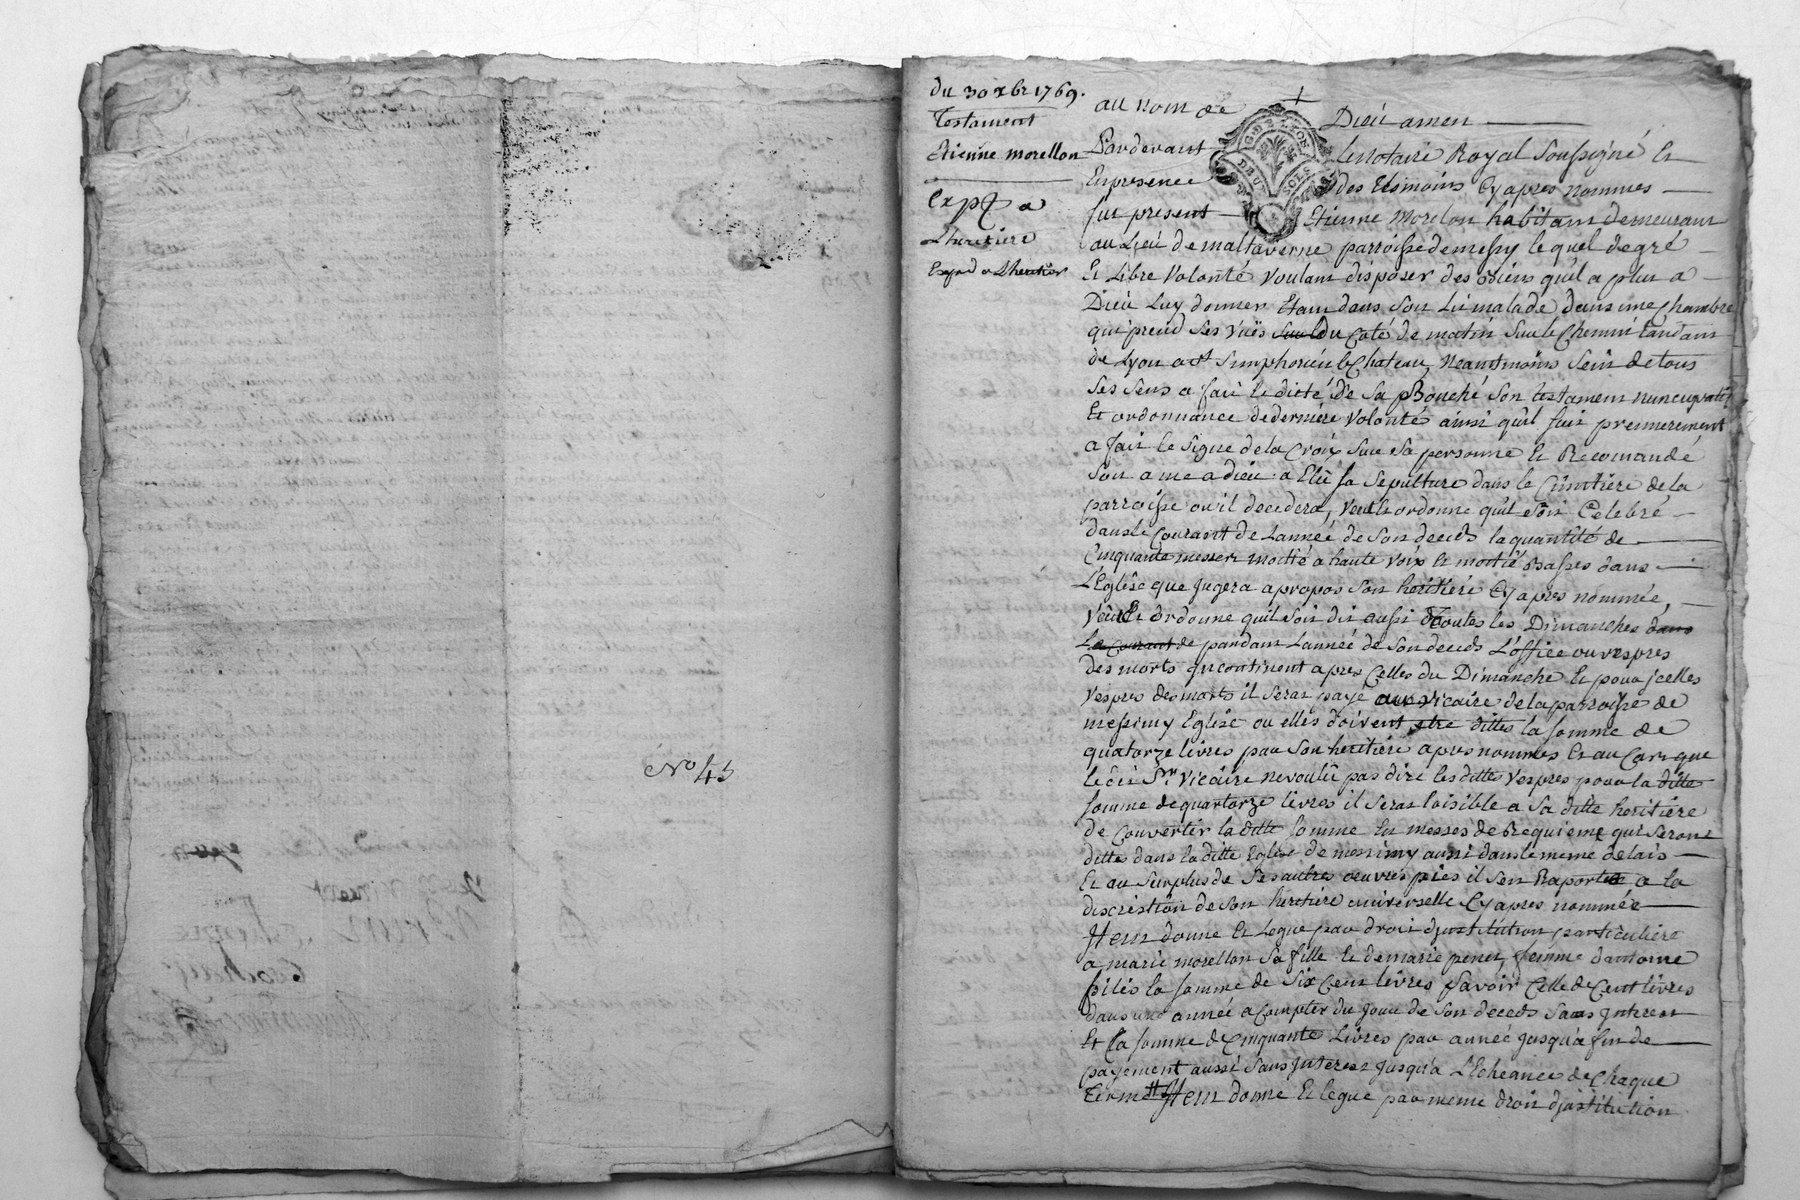 No 45
du 30 xbr 1769.
Testament
Etienne morellon
Exp a
Lheritiere
Exped a Lheritier
au nom de Dieu amen
G. DE LYON
DEUX SOLS
Pardevant le notaire Royal Soussigné Et
En presence des tesmoins Cy apres nommes
fut present Etienne Morelon habitant demeurant
au Lieu de maltaverne parroisse de messimy le quel de gré
Et Libre Volonté Voulant disposer des Biens qu'il a plut a
Dieu Luy donner Etant dans son Lit malade dans une Chambre
qui prend ses Vuës du Coté de matin Sur le Chemin tandant
de Lyon a st Simphorien le Chateau, Neantmoins Sein de tous
Ses Sens a fait Et dicté de Sa Bouche Son testament nuncupatif
Et ordonnance de derniere Volonté ainsi qu'il Suit premierement
a fait le Signe de la Croix Sur Sa personne Et Recomandé
Son ame a dieu a Elü Sa Sepulture dans le Cimetiere de la
parroisse ou il decedera, Veut Et ordonne qu'il Soit Celebré
dans le Courant de Lannée de Son deceds la quantité de
Cinquante messes moitié a haute Voix Et moitié Basses dans
L'Eglise que Jugera a propos Son heritiere Cy apres nommée,
Veut Et ordonne quil Soit dit aussi toutes les Dimanches dans
Le Courant de pandant Lannée de Son deceds L'office ou vespres
des morts apres Celles du Dimanche Et pour jcelles
Vespres des morts il Sera payé au Vicaire de la parroisse de
messimy Eglise ou elles doivent etre dittes la Somme de
quatorze livres par Son heritiere apres nommes Et au Cas que
le dit Sr Vicaire ne voulu pas dire les dittes Vespres pour la ditte
Somme de quatorze livres il Sera loisible a Sa ditte heritiere
de Convertir la ditte Somme En messes de Requiem qui Seront
dittes dans la ditte Eglise de messimy aussi dans le meme delais
Et au Surplus de Ses autres oeuvres pies il Sen Raporte a la
discrestion de Son heritiere universelle Cy apres nommée
Jtem donne Et Legue par droit d'jnstitution particuliere
a marie morellon Sa fille Et de marie penet, femme dantoine
pilés la Somme de Six Cent livres Savoir Celle de Cent livres
dans une année a Compter du Jour de Son deceds Sans Jnterest
Et la Somme de Cinquante Livres par année Jusqu'a fin de
payement aussi Sans Jnterest Jusqu'a L'Echeance de Chaque
Terme Jtem donne Et legue par meme droit d'jnstitution